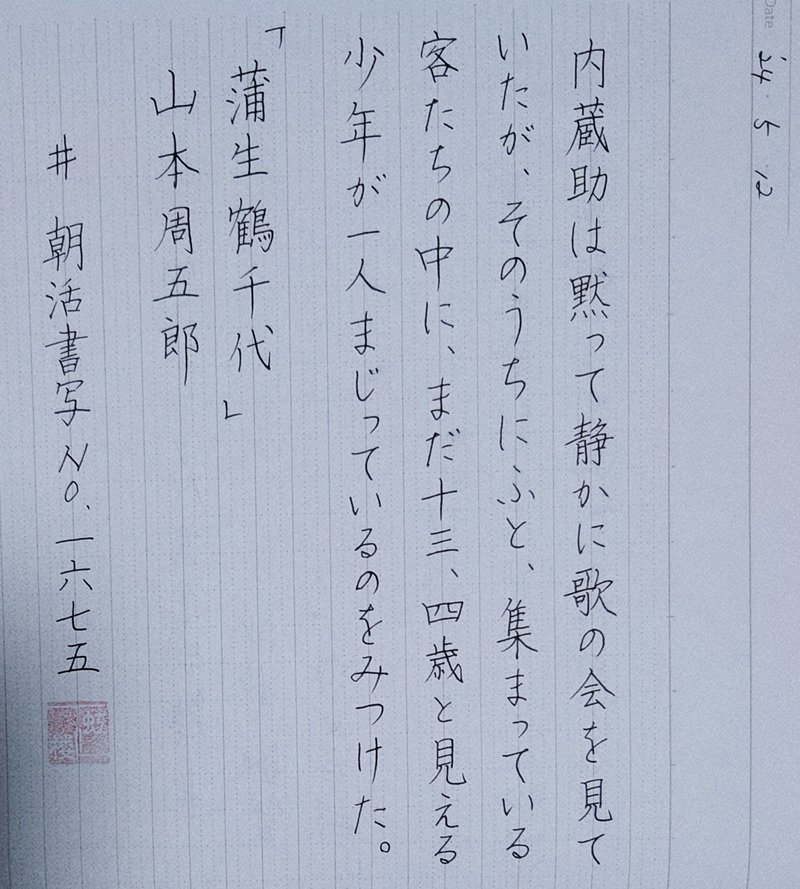 Date
24.5.12
内蔵助は黙って静かに歌の会を見て
いたが、そのうちにふと、集まっている
客たちの中に、まだ十三、四歳と見える
少年が一人まじっているのをみつけた。
「蒲生鶴千代」
山本周五郎
# 朝活書写 NO.一六七五